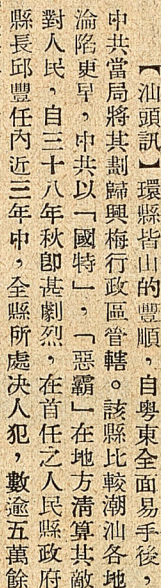 【汕頭訊】環縣皆山的豐順，自粵東全面易手後，
中共當局將其劃歸興梅行政區管轄。該縣比較潮汕各地
淪陷更早，中共以「國特」，「惡霸」在地方淸算其敵
對人民，自三十八年秋卽甚劇烈，在首任之人民縣政府
縣長邱豐任內近三年中，全縣所處决人犯，數逾五萬餘